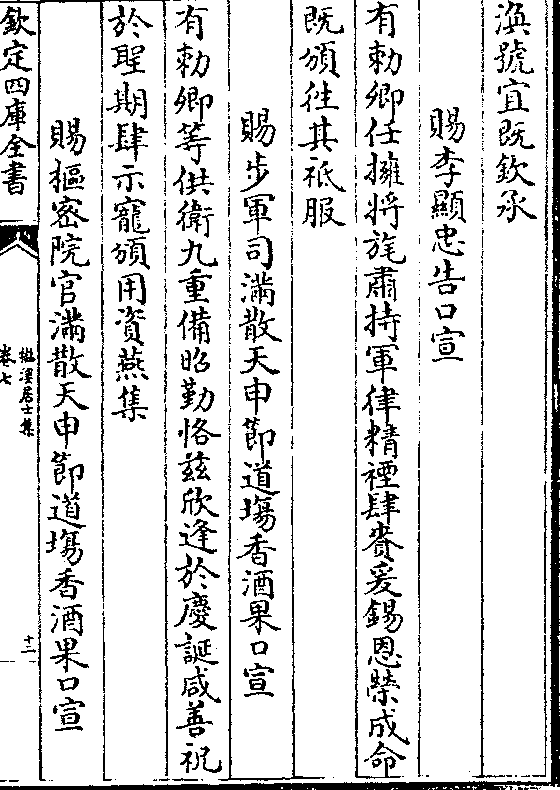 渙號宜既欽承
賜李顯忠告口宣
有勅卿任擁將旄肅持軍律精禋肆賚爰錫恩榮成命
既頒徃其祗服
賜步軍司滿散天申節道塲香酒果口宣
有勅卿等供衛九重備昭勤恪兹欣逢於慶誕咸善祝
於聖期肆示寵頒用資燕集
賜樞密院官滿散天申節道塲香酒果口宣
欽定四庫全書
卷七
十二